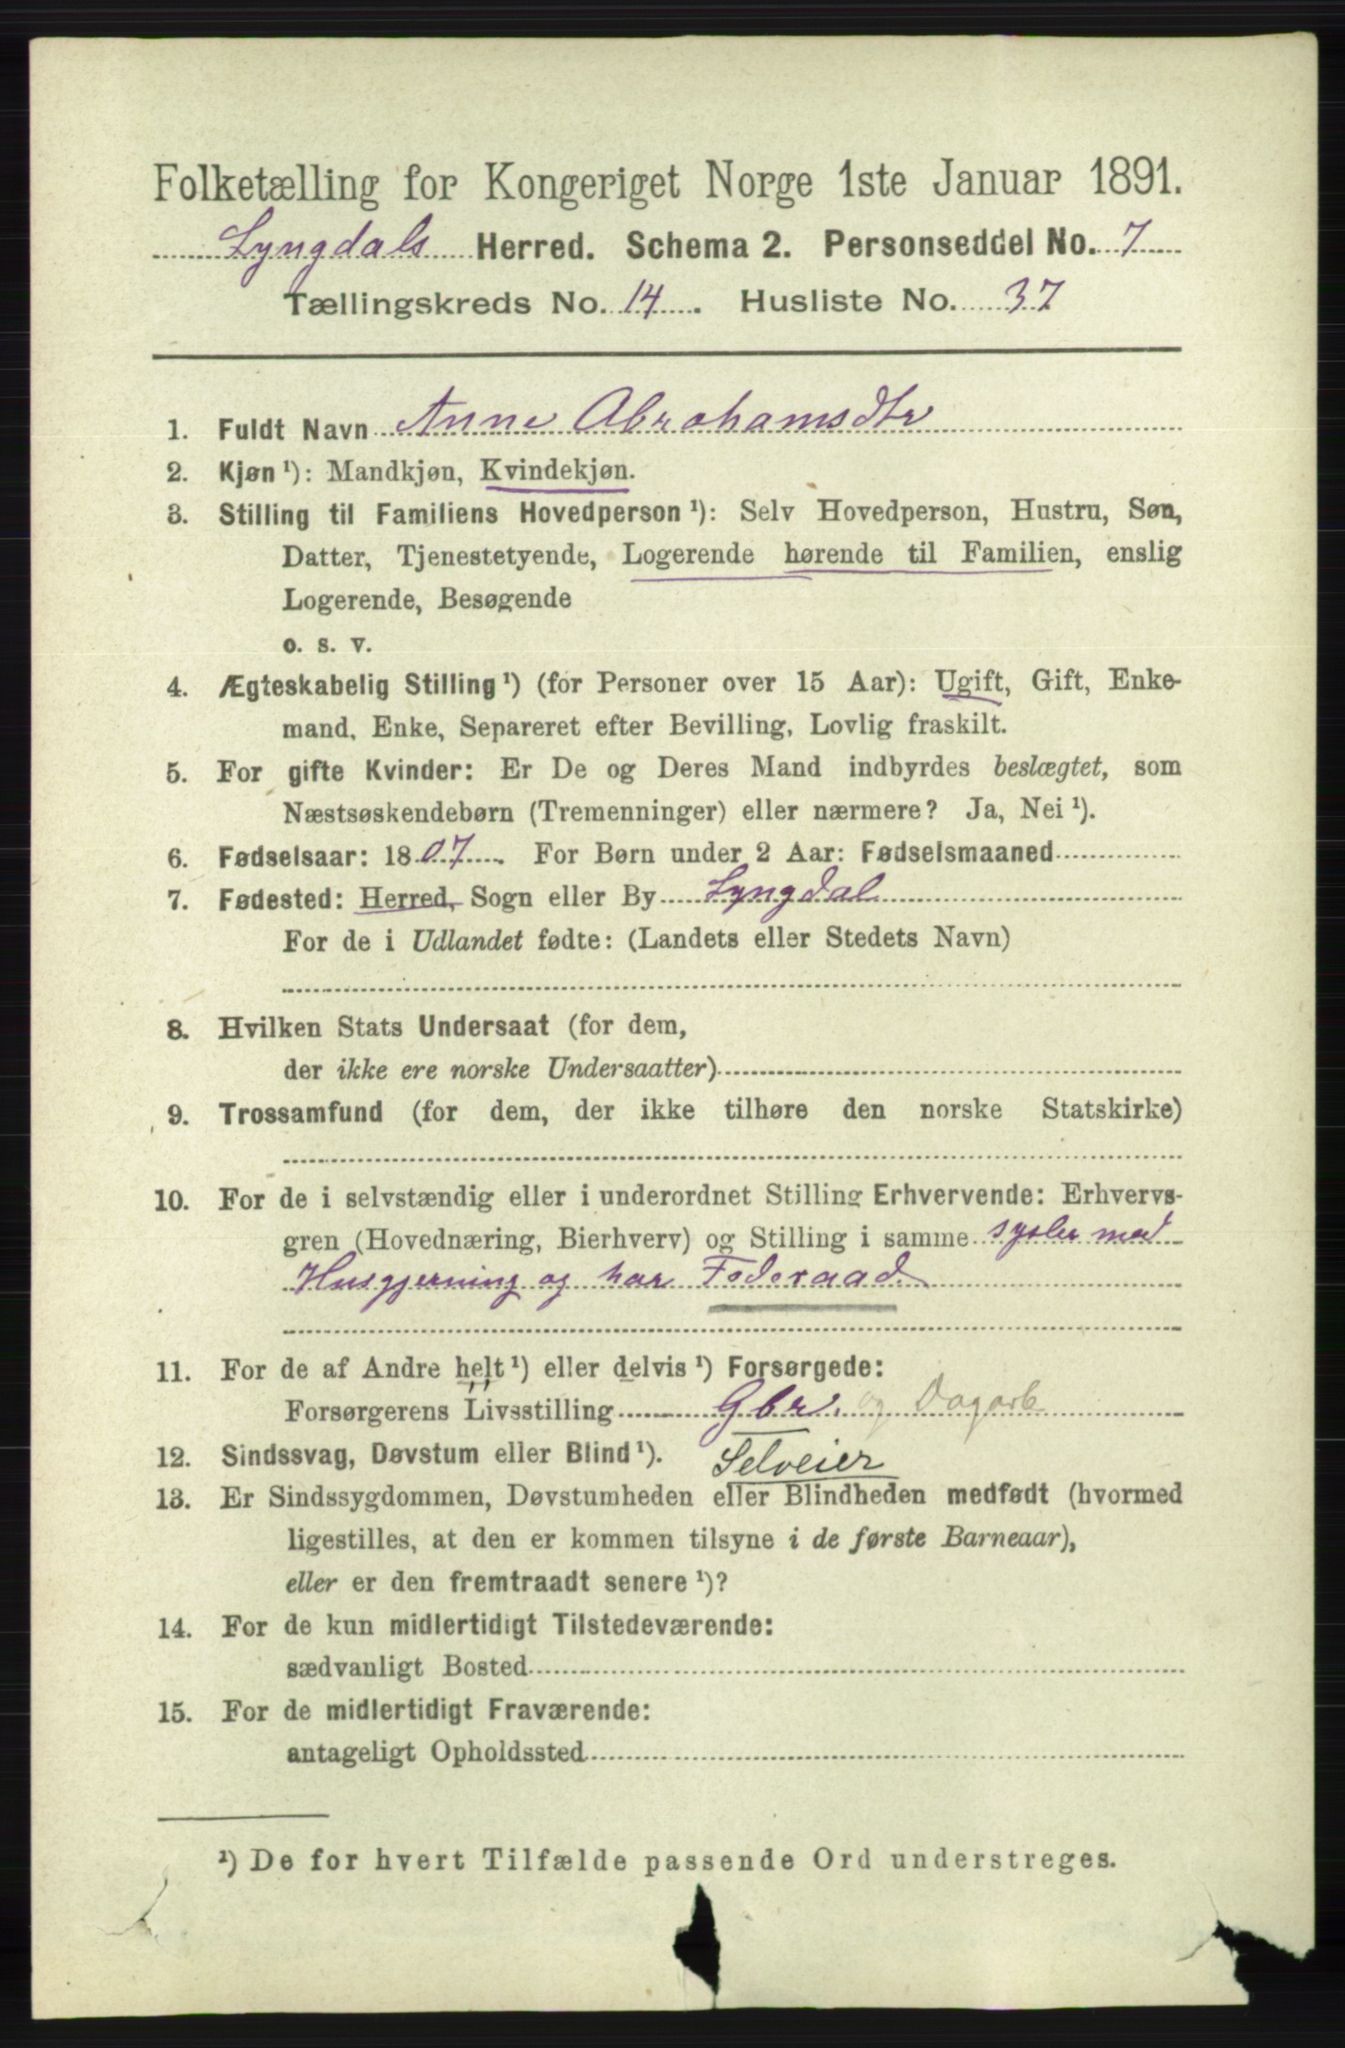 Folketælling for Kongeriget Norge 1ste Januar 1891.
Lyngdals Herred. Schema 2. Personseddel No. 7
Tællingskreds No. 14. Husliste No. 37
1. Fuldt Navn Anne Abrahamsdtr
2. Kjøn ¹): Mandkjøn, Kvindekjøn.
3. Stilling til Familiens Hovedperson ¹): Selv Hovedperson, Hustru, Søn,
Datter, Tjenestetyende, Logerende hørende til Familien, enslig
Logerende, Besøgende
o. s. v.
4. Ægteskabelig Stilling ¹) (for Personer over 15 Aar): Ugift, Gift, Enke-
mand, Enke, Separeret efter Bevilling, Lovlig fraskilt.
5. For gifte Kvinder: Er De og Deres Mand indbyrdes beslægtet, som
Næstsøskendebørn (Tremenninger) eller nærmere? Ja, Nei ¹).
6. Fødselsaar: 1807. For Børn under 2 Aar: Fødselsmaaned
7. Fødested: Herred, Sogn eller By Lyngdal
For de i Udlandet fødte: (Landets eller Stedets Navn)
8. Hvilken Stats Undersaat (for dem,
der ikke ere norske Undersaatter)
9. Trossamfund (for dem, der ikke tilhøre den norske Statskirke)
10. For de i selvstændig eller i underordnet Stilling Erhvervende: Erhvervs-
gren (Hovednæring, Bierhverv) og Stilling i samme sysler med
Husgjerning og har Føderaad.
11. For de af Andre helt ¹) eller delvis ¹) Forsørgede:
Forsørgerens Livsstilling Gbr. og Dagarb
12. Sindssvag, Døvstum eller Blind ¹). Selveier
13. Er Sindssygdommen, Døvstumheden eller Blindheden medfødt (hvormed
ligestilles, at den er kommen tilsyne i de første Barneaar),
eller er den fremtraadt senere ¹)?
14. For de kun midlertidigt Tilstedeværende:
sædvanligt Bosted
15. For de midlertidigt Fraværende:
antageligt Opholdssted
¹) De for hvert Tilfælde passende Ord understreges.